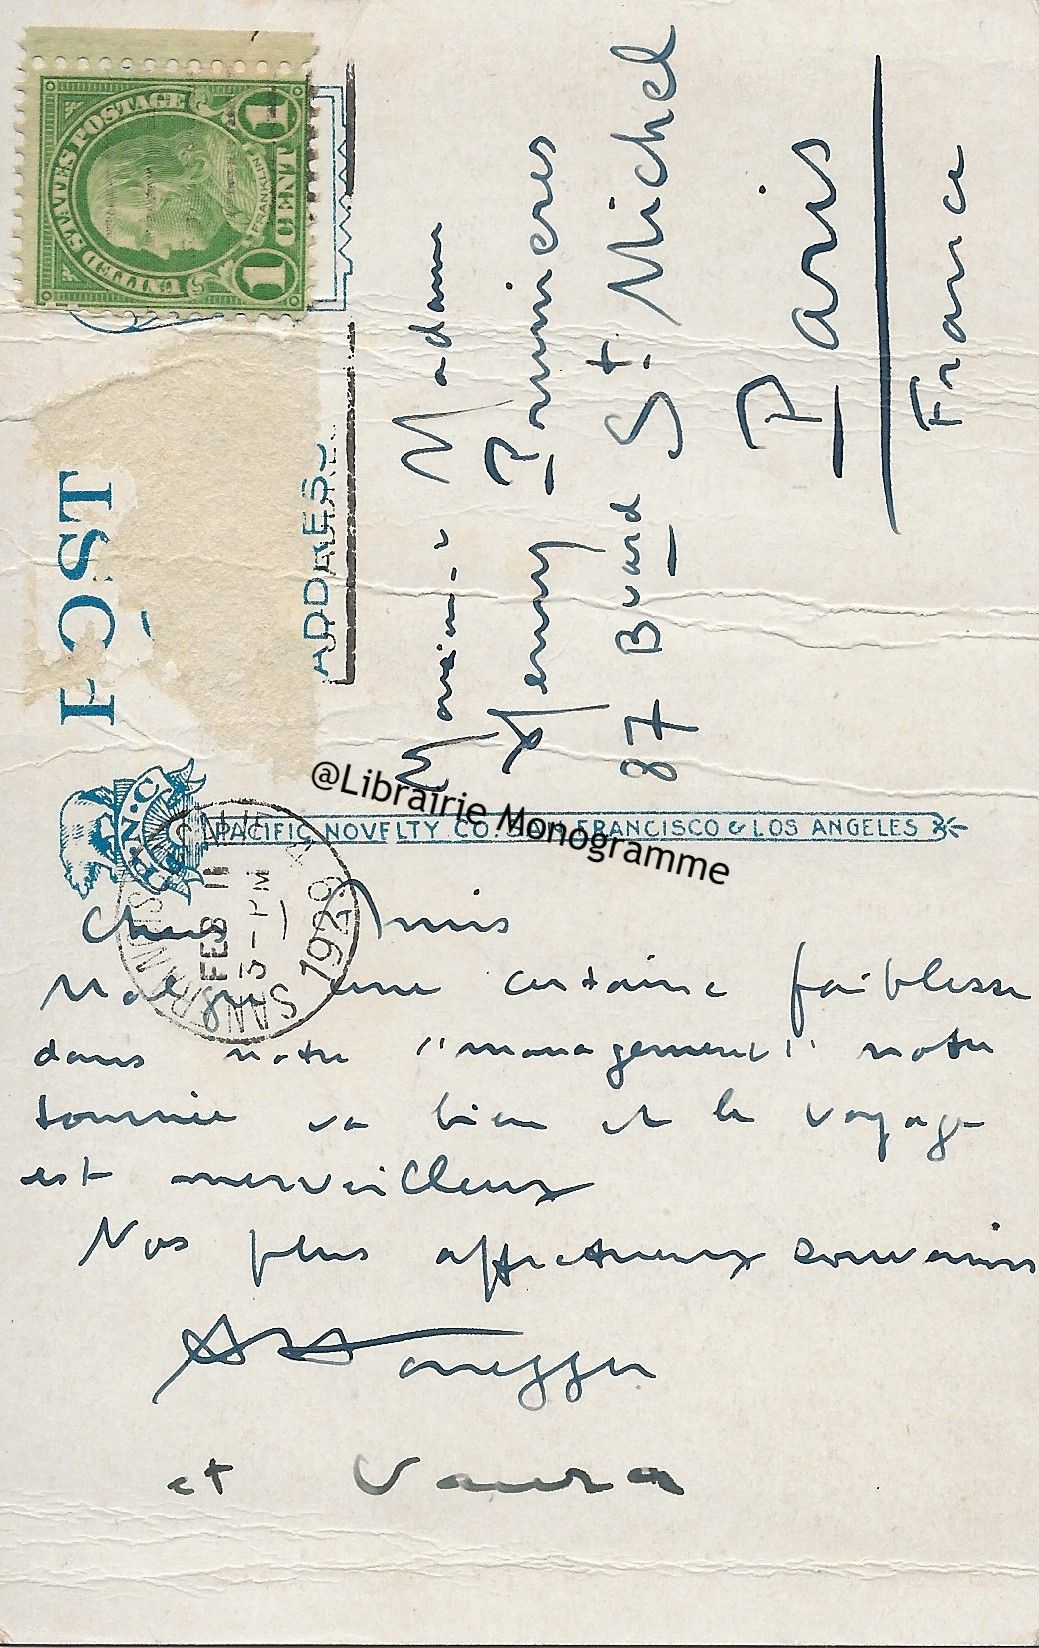 UNITED STATES POSTAGE
FRANKLIN
1 CENT 1
POST
ADDRESS
Monsieur Madame
Henry Prunières
87 Bvard St. Michel
Paris
France
PACIFIC NOVELTY CO. SAN FRANCISCO & LOS ANGELES
P.N.C.
SAN FRANCISCO
FEB 11
3-PM
1929
@Librairie Monogramme
Chers Amis
Malgré une certaine faiblesse
dans notre "management" notre
tournée va bien et le voyage
est merveilleux
Nos plus affectueux souvenirs
AHonegger
et Vaura